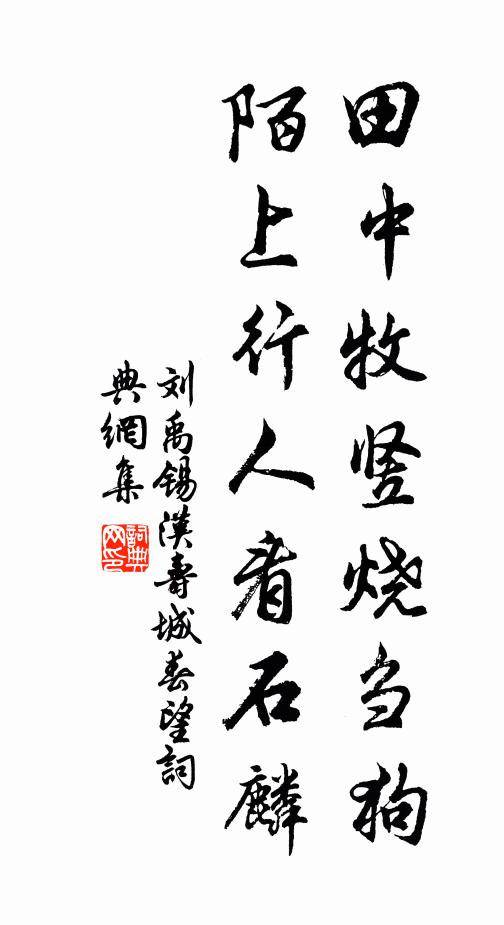 田中牧竖烧刍狗
陌上行人看石麟
刘禹锡汉寿城春望词
典網集
詞典网印